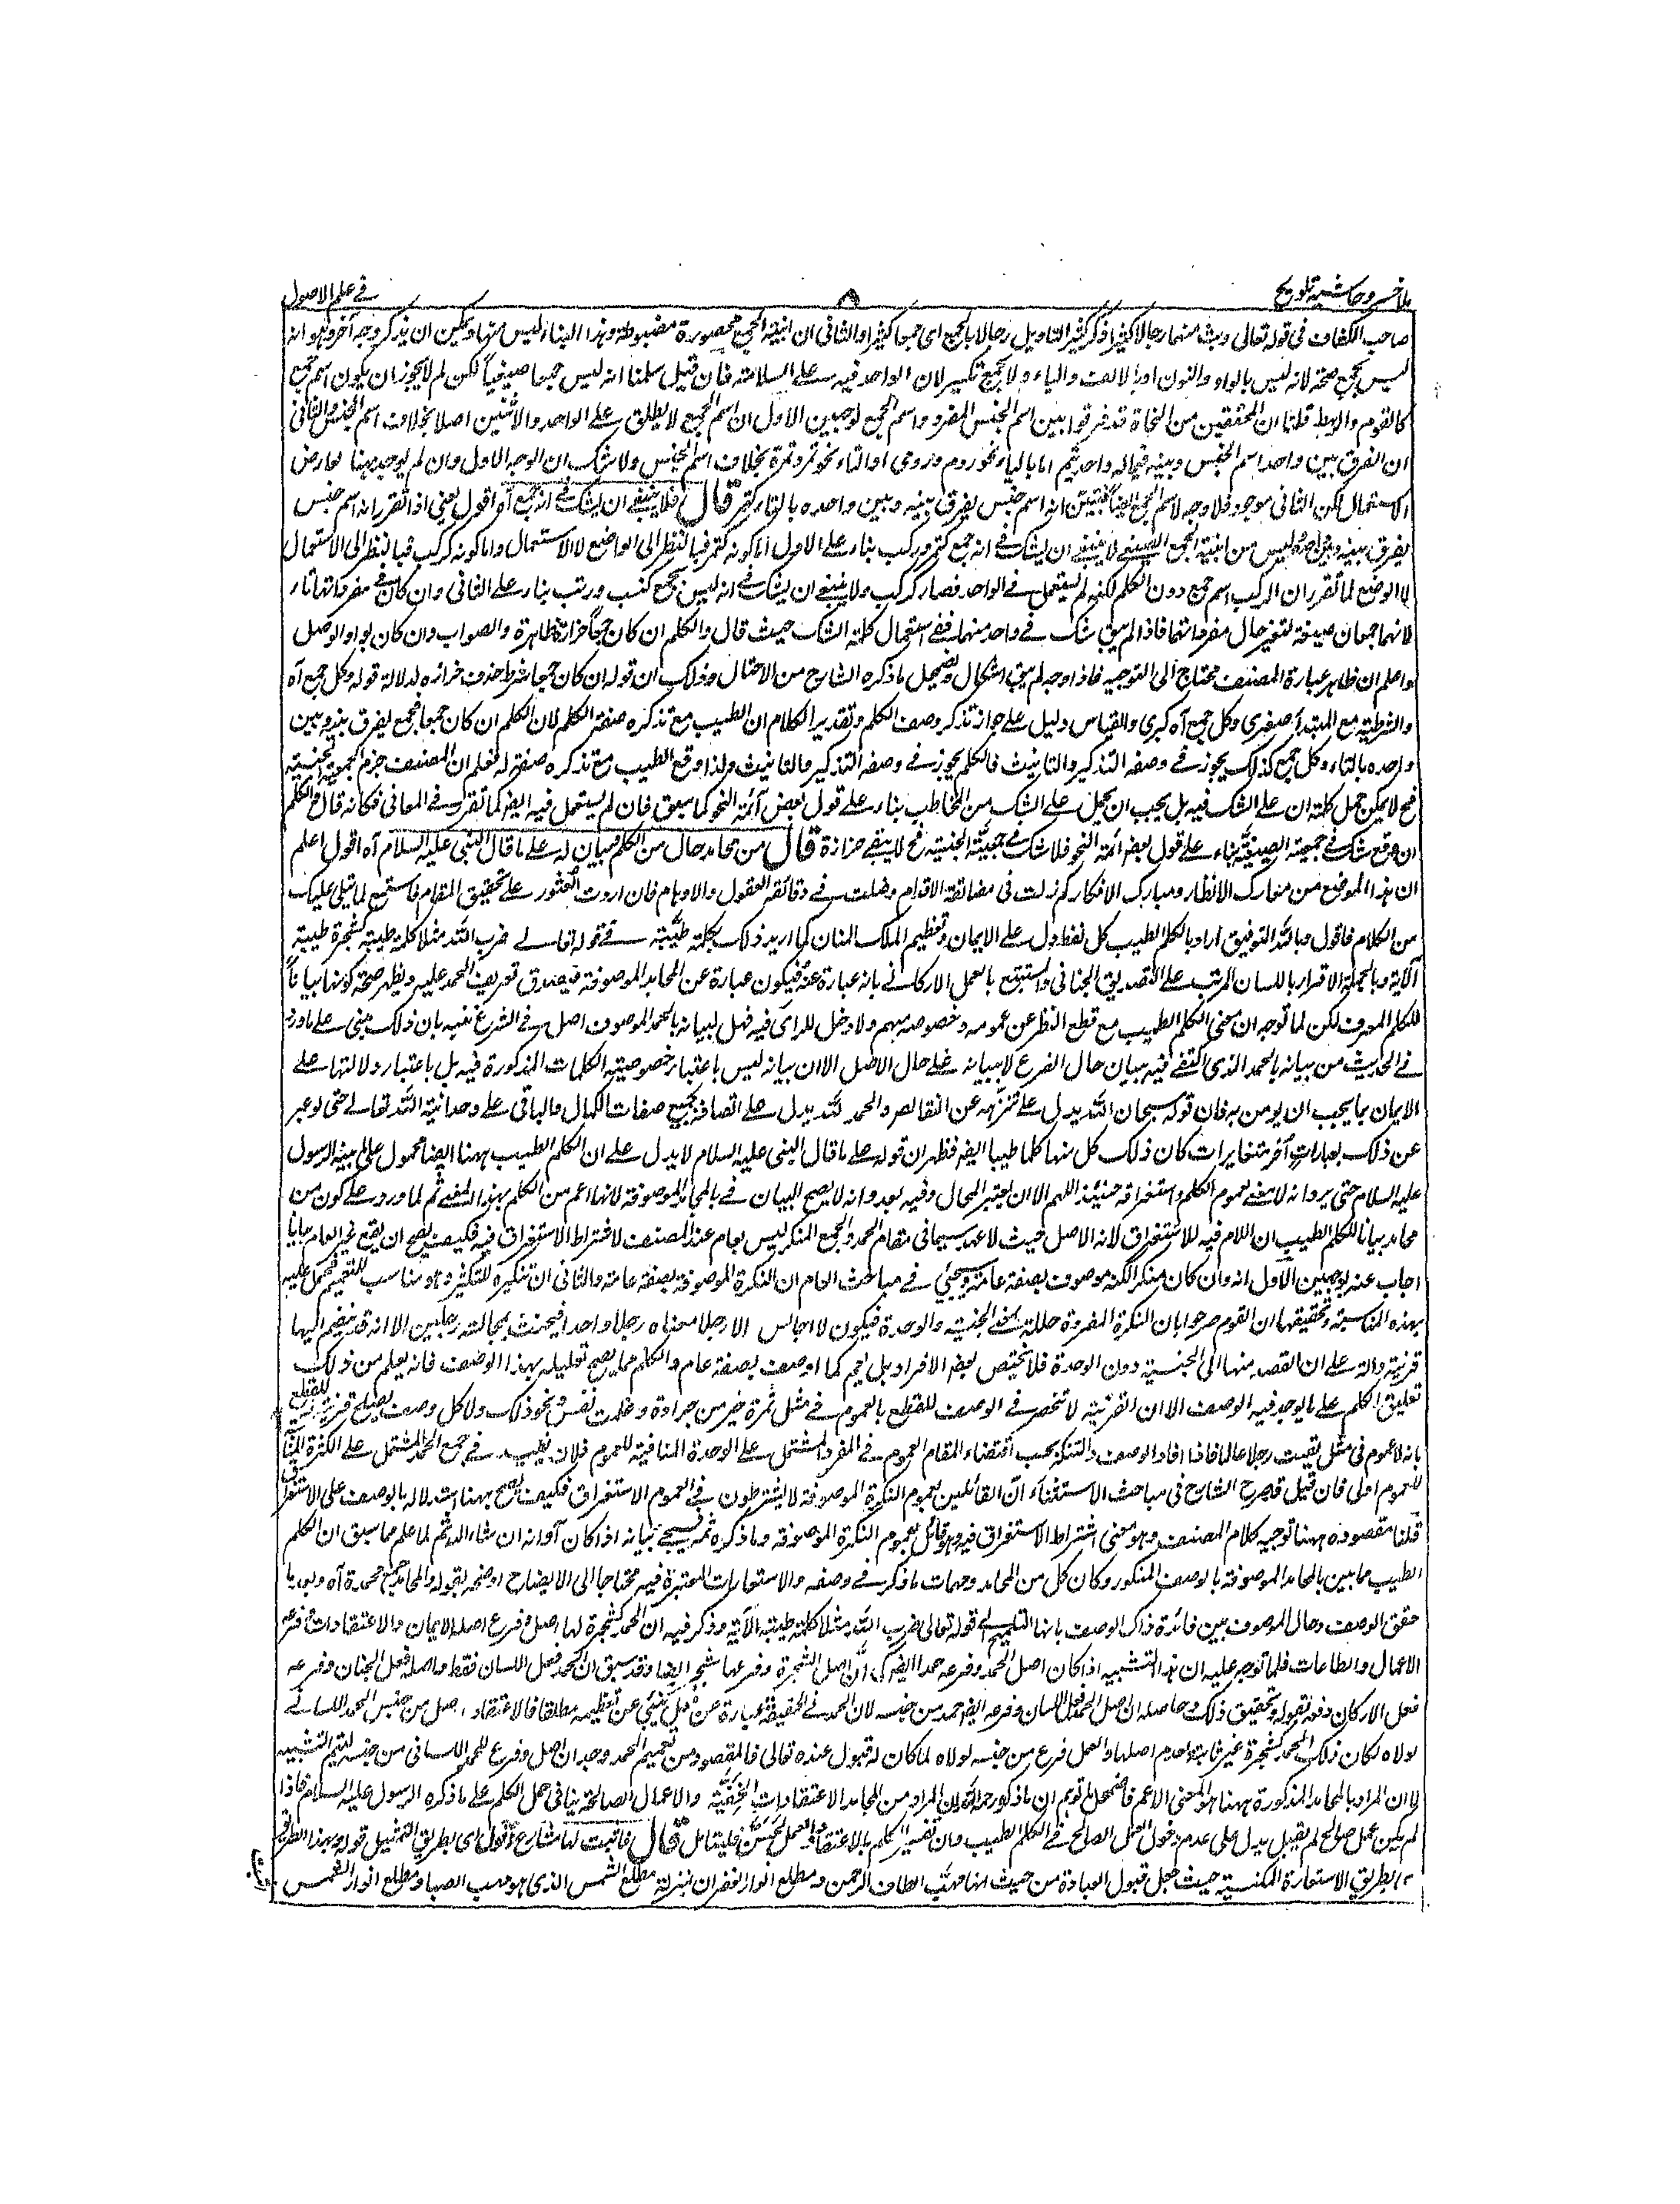 ملا خسرو حاشية تلويح
٨
في علم الاصول
صاحب الكشاف في قوله تعالى وبث منهما رجالا كثيرا ذكر كثيرا لتاويل رجالا بالجمع اى جمعا كثيرا والثاني ان ابنية الجمع محصورة مضبوطة وهذا البناء ليس منها ويمكن ان يذكر وجه آخر وهو انه
ليس بجمع صحة لانه ليس بالواو والنون او بالالف والتاء ولا بجمع تكسير لان الواحد فيه على السلامة فان قيل سلمنا انه ليس جمعا صيغيا لكن لم لا يجوز ان يكون اسم جمع
كالقوم والرهط قلنا ان المحققين من النحاة قد فرقوا بين اسم الجنس المفرد واسم الجمع لوجهين الاول ان اسم الجمع لا يطلق على الواحد والاثنين اصلا بخلاف اسم الجنس والثاني
ان الفرق بين واحد اسم الجنس وبينه فيما له واحد يتم اما بالياء نحو روم ورومى او التاء نحو تمر وتمرة بخلاف اسم الجنس ولا شك ان الوجه الاول وان لم يوجد ههنا لعارض
الاستعمال لكن الثاني موجود فلا وجه لاسم الجمع ايضا فتبين انه اسم جنس يفرق بينه وبين واحده بالتاء كتمر قال فلا ينبغي ان يشك في انه جمع آه اقول يعني اذا تقرر انه اسم جنس
يفرق بينه وبين واحده ليس من ابنية الجمع لا ينبغي ان يشك في انه جمع كتمر وركب بناء على الاول اما كونه كتمر فبالنظر الى الواضع لا الاستعمال واما كونه كركب فبالنظر الى الاستعمال
لا الوضع لما تقرر ان الركب اسم جمع دون الكلم لكنه لم يستعمل في الواحد فصار كركب ولا ينبغي ان يشك في انه ليس بجمع كنسب ورتب بناء على الثاني وان كان في مفرداتها تاء
لانهما جمعان صيغة لتغير حال مفرداتهما فاذا لم يبق شك في واحد منهما ففي استعمال كلمة الشك حيث قال والكلم ان كان جمعا حزازة ظاهرة والصواب وان كان بواو الوصل
واعلم ان ظاهر عبارة المصنف محتاج الى التوجيه فاذا وجه لم يبق اشكال ويضمحل ما ذكره الشارح من الاحتمال وذلك ان قوله ان كان جمعا شرط حذف جزاؤه لدلالة قوله وكل جمع آه
والشرطية مع المبتدأ صغرى وكل جمع آه كبرى والقياس دليل على جواز تذكر وصف الكلم وتقدير الكلام ان الطيب مع تذكره صفة الكلم لان الكلم ان كان جمعا فجمع يفرق بينه وبين
واحده بالتاء وكل جمع كذلك يجوز في وصفه التذكير والتانيث فالكلم يجوز في وصفه التذكير والتانيث ولذا وقع الطيب مع تذكره صفة له فعلم ان المصنف جزم
فح لا يمكن حمل كلمة ان على الشك فيه بل يجب ان يحمل على الشك من المخاطب بناء على قول بعض آئمة النحو كما سبق فان لم يستعمل فيه ايضا كما تقرر في المعاني فكانه قال والكلم
ان وقع شك في جمعيته الصيغية بناء على قول بعض ائمة النحو فلا شك في جمعيته الجنسية فح لا يبقى حزازة قال من محامد حال من الكلم بيان له على ما قال النبي عليه السلام آه اقول اعلم
ان هذا الموضع من معارك الانظار ومبارك الافكار كم زلت في مضائقه الاقدام وضلت في دقائقه العقول والاوهام فان اردت العثور على تحقيق المقام فاستمع لما يتلى عليك
من الكلام فاقول وبالله التوفيق اراد بالكلم الطيب كل لفظ دل على الايمان وتعظيم الملك المنان كما اريد ذلك بكلمة طيبة في قوله تعالى ضرب الله مثلا كلمة طيبة كشجرة طيبة
الآية وبالجملة الاقرار باللسان المرتب على التصديق الجناني والمستتبع بالعمل الاركاني بانه عبارة عنه فيكون عبارة عن المحامد الموصوفة فيصدق تعريف الحمد عليه ويظهر صحة كونها بيانا
للكلم المعرف لكن لما توجه ان معنى الكلم الطيب مع قطع النظر عن عمومه وخصوصه مبهم ولا دخل للراى فيه فهل لبيانه بالحمد الموصوف اصل في الشرع نبه بان ذلك مبني على ما ورد
في الحديث من بيانه بالحمد الذي اكتفى فيه ببيان حال الفرع لابتنائه على حال الاصل الا ان بيانه ليس باعتبار خصوصية الكلمات المذكورة فيه بل باعتبار دلالتها على
الايمان بما يجب ان يومن به فان قوله سبحان الله يدل على تنزهه عن النقائص والحمد لله يدل على اتصافه بجميع صفات الكمال والباقي على وحدانية الله تعالى حتى لو عبر
عن ذلك بعبارات آخر متغايرات كان ذلك كل منها كلما طيبا ايضا فظهر ان قوله على ما قال النبي عليه السلام لا يدل على ان الكلم الطيب ههنا ايضا محمول على ما بينه الرسول
عليه السلام حتى يرد انه لا معنى لعموم الكلم واستغراقه حينئذ اللهم الا ان يعتبر المحال وفيه بعد وانه لا يصح البيان في بالمحامد الموصوفة لانها اعم من الكلم بهذا المعنى ثم لما ورد على كون من
محامد بيانا للكلم الطيب ان اللام فيه للاستغراق لانه الاصل حيث لا عهد سيما في مقام الحمد والجمع المنكر ليس بعام عند المصنف لاشتراط الاستغراق فيه فكيف يصح ان يقع غير العام بيانا
اجاب عنه بوجهين الاول انه وان كان منكرا لكنه موصوف بصفة عامة وسيجئ في مباحث العام ان النكرة الموصوفة بصفة عامة والثاني ان تنكيره للتكثير وهو مناسب للتعميم فحمل عليه
بهذه المناسبة وتحقيقها ان القوم صرحوا بان النكرة المفردة معنى الجنسية والوحدة فيكون لا اجالس الا رجلا معناه رجلا واحدا فيحنث بمجالسة رجلين الا انه قد ينضم اليها
قرينة دالة على ان القصد منها الى الجنسية دون الوحدة فلا تختص بعض الافراد بل تعم كما اذا وصف بصفة عام والكلم مما يصح تعليله بهذا الوصف فانه يعلم من ذلك
تعليق الكلم على ما يوجد فيه الوصف الا ان القرينة لا تنحصر في الوصف للقطع بالعموم في مثل تمرة خير من جرادة وعلمت نفس ونحو ذلك ولا كل وصف يصلح قرينة للقطع
بانه لا عموم في مثل لقيت رجلا عالما فاذا افاد الوصف والتنكير بحسب اقتضاء المقام العموم في المفرد المشتمل على الوحدة المنافية للعموم فلان يفيد في جمع الحمد المشتمل على الكثرة
للعموم اولى فان قيل قد صرح الشارح في مباحث الاستثناء ان القائلين بعموم النكرة الموصوفة لا يشترطون في العموم الاستغراق فكيف يصح ههنا استدلاله بالوصف على الاستغراق
قلنا مقصوده ههنا توجيه كلام المصنف وهو معنى اشتراط الاستغراق فيه وهو قائل بعموم النكرة الموصوفة وما ذكره ثمه سيجئ بيانه اذا كان آوانه ان شاء الله ثم لما علم مما سبق ان الكلم
الطيب مباين بالمحامد الموصوفة بالوصف المذكور وكان كل من المحامد وجهات ما ذكر في وصفه والاستعارات المعتبرة فيه محتاجا الى الايضاح اوضحه بقوله والمحامد جمع محمدة آه وبعد ما
حقق الوصف وحال الموصوف بين فائدة ذلك الوصف بانها التلميح الى قوله تعالى ضرب الله مثلا كلمة طيبة الآية وذكر فيه ان الحمد كشجرة لها اصل وفرع اصله الايمان والاعتقادات وفرعه
الاعمال والطاعات فلما توجه عليه ان هذا التشبيه اذا كان اصل الحمد وفرعه حمدا ايضا كما ان اصل الشجرة وفرعها شجر ايضا وقد سبق ان الحمد فعل اللسان فقط واصله فعل الجنان وفرعه
فعل الاركان دفعه بقوله وتحقيق ذلك وحاصله ان اصل الحمد فعل اللسان وفرعه ايضا حمد من جنسه لان الحمد في الحقيقة عبارة عن فعل ينبئ عن تعظيمه مطلقا فالاعتقاد اصل من جنس الحمد اللساني
لولاه لكان ذلك الحمد كشجرة غير ثابتة لعدم اصلها والعمل فرع من جنسه لولاه لما كان له قبول عنده تعالى فالمقصود من تعميم الحمد وجدان اصل وفرع للحمد اللساني من جنسه ليتم التشبيه
لا ان المراد بالمحامد المذكورة ههنا هو المعنى الاعم فاضمحل ما توهم ان ما ذكره ان المراد من المحامد الاعتقادات الحقية والاعمال الصالحة ينافي حمل الكلم على ما ذكره الرسول عليه السلام فاذا
لم يكن عمل صالح لم يقبل يدل على عدم دخول العمل الصالح في الكلم الطيب وان تفسير الكلم بالاعتقاد والعمل فليتامل قال فاثبت لها مشارع اقول اى بطريق التمثيل قوله بهذا الطريق
بطريق الاستعارة المكنية حيث جعل قبول العبادة من حيث انها مهب الطاف الرحمن ومطلع انوار الغفران بمنزلة مطلع الشمس الذي هو مهب الصبا ومطلع انوار الشمس